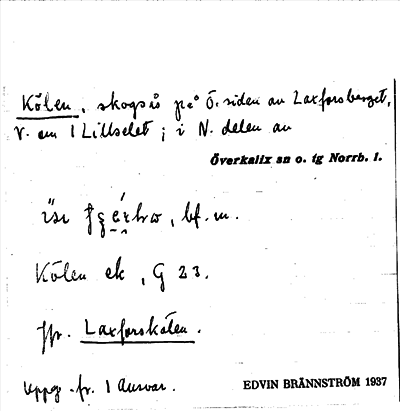 Kölen, skogsås på Ö. siden av Laxforsberget,
V. om 1 Lillselet; i N. delen av
Överkalix sn o. tg Norrb. l.
bf. m.
Kölen ek, G 23.
Jfr. Laxforskölen.
Uppg. fr. 1 Ansvar.
EDVIN BRÄNNSTRÖM 1937